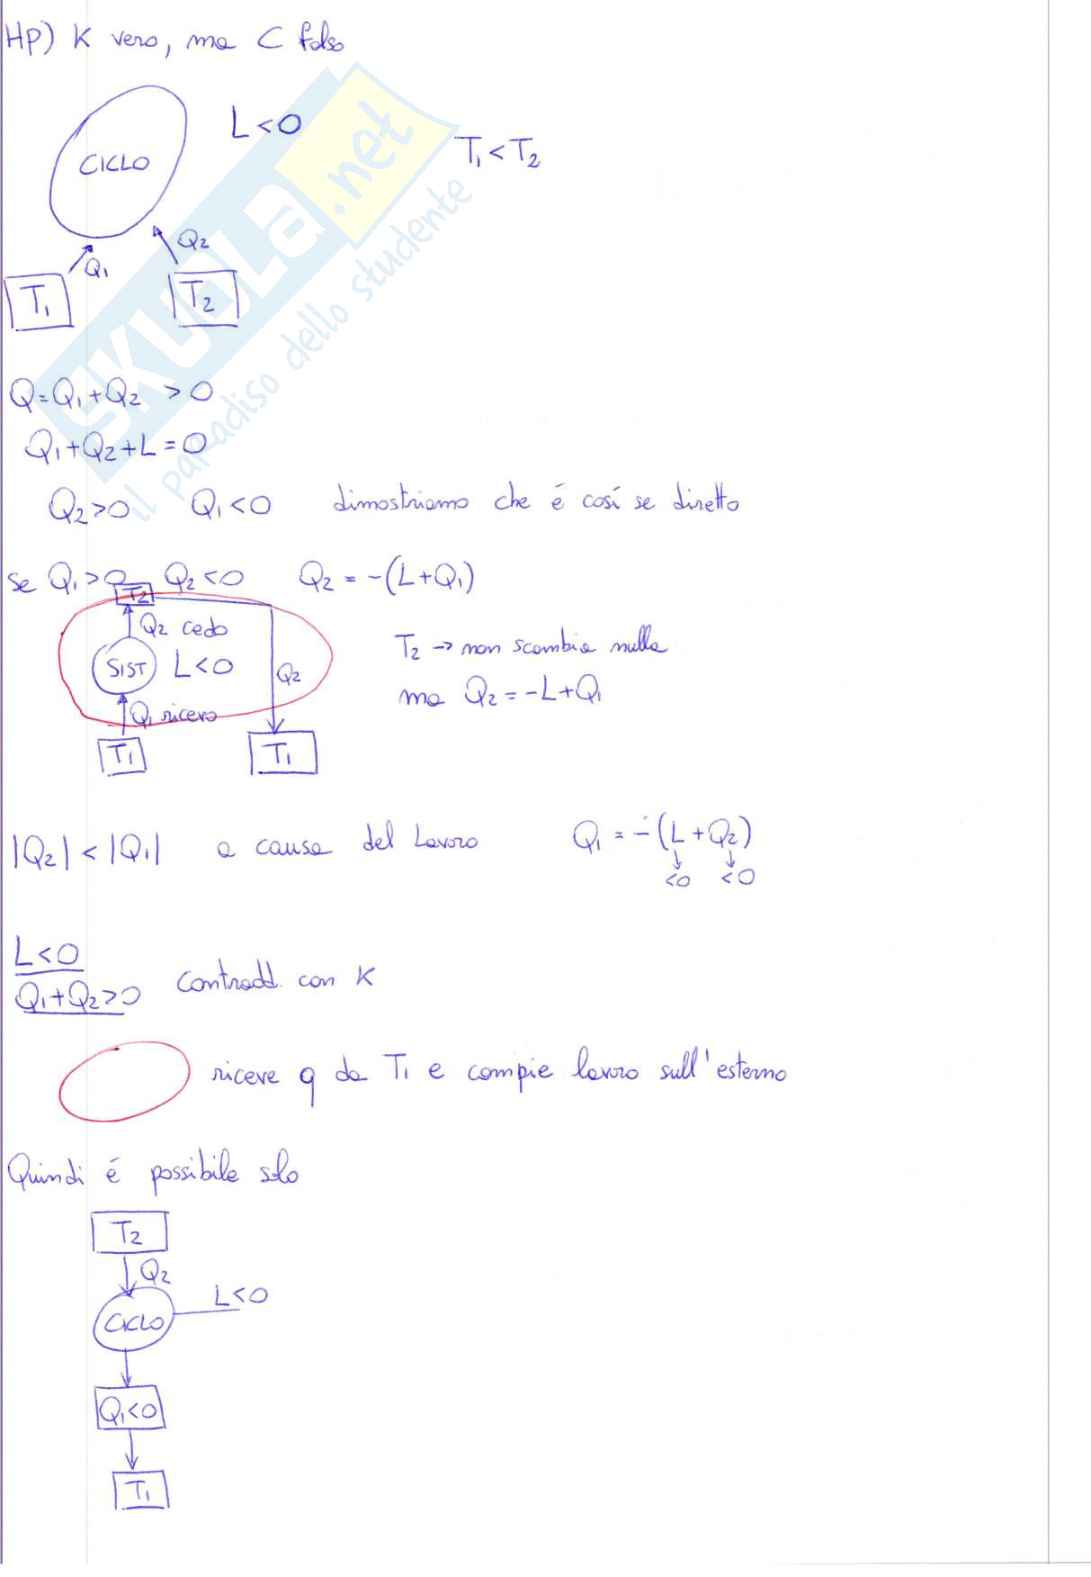 HP) K vero, ma C falso
CICLO
L<0
T₁<T₂
Q₁
Q₂
T₁
T₂
Q=Q₁+Q₂ >0
Q₁+Q₂+L=0
Q₂>0 Q₁<0 dimostriamo che é cosí se diretto
se Q₁>0 Q₂<0 Q₂ = -(L+Q₁)
T₂
Q₂ cedo
SIST L<0
Q₂
Q₁ ricevo
T₁
T₁
T₂ → non scambia nulla
ma Q₂ = -L+Q₁
|Q₂| < |Q₁| a causa del Lavoro Q₁ = -(L+Q₂)
<0 <0
L<0
Q₁+Q₂>0 Contradd. con K
riceve q da T₁ e compie lavoro sull'esterno
Quindi é possibile solo
T₂
Q₂
CICLO
L<0
Q₁<0
T₁
SKUOLA.net
il paradiso dello studente